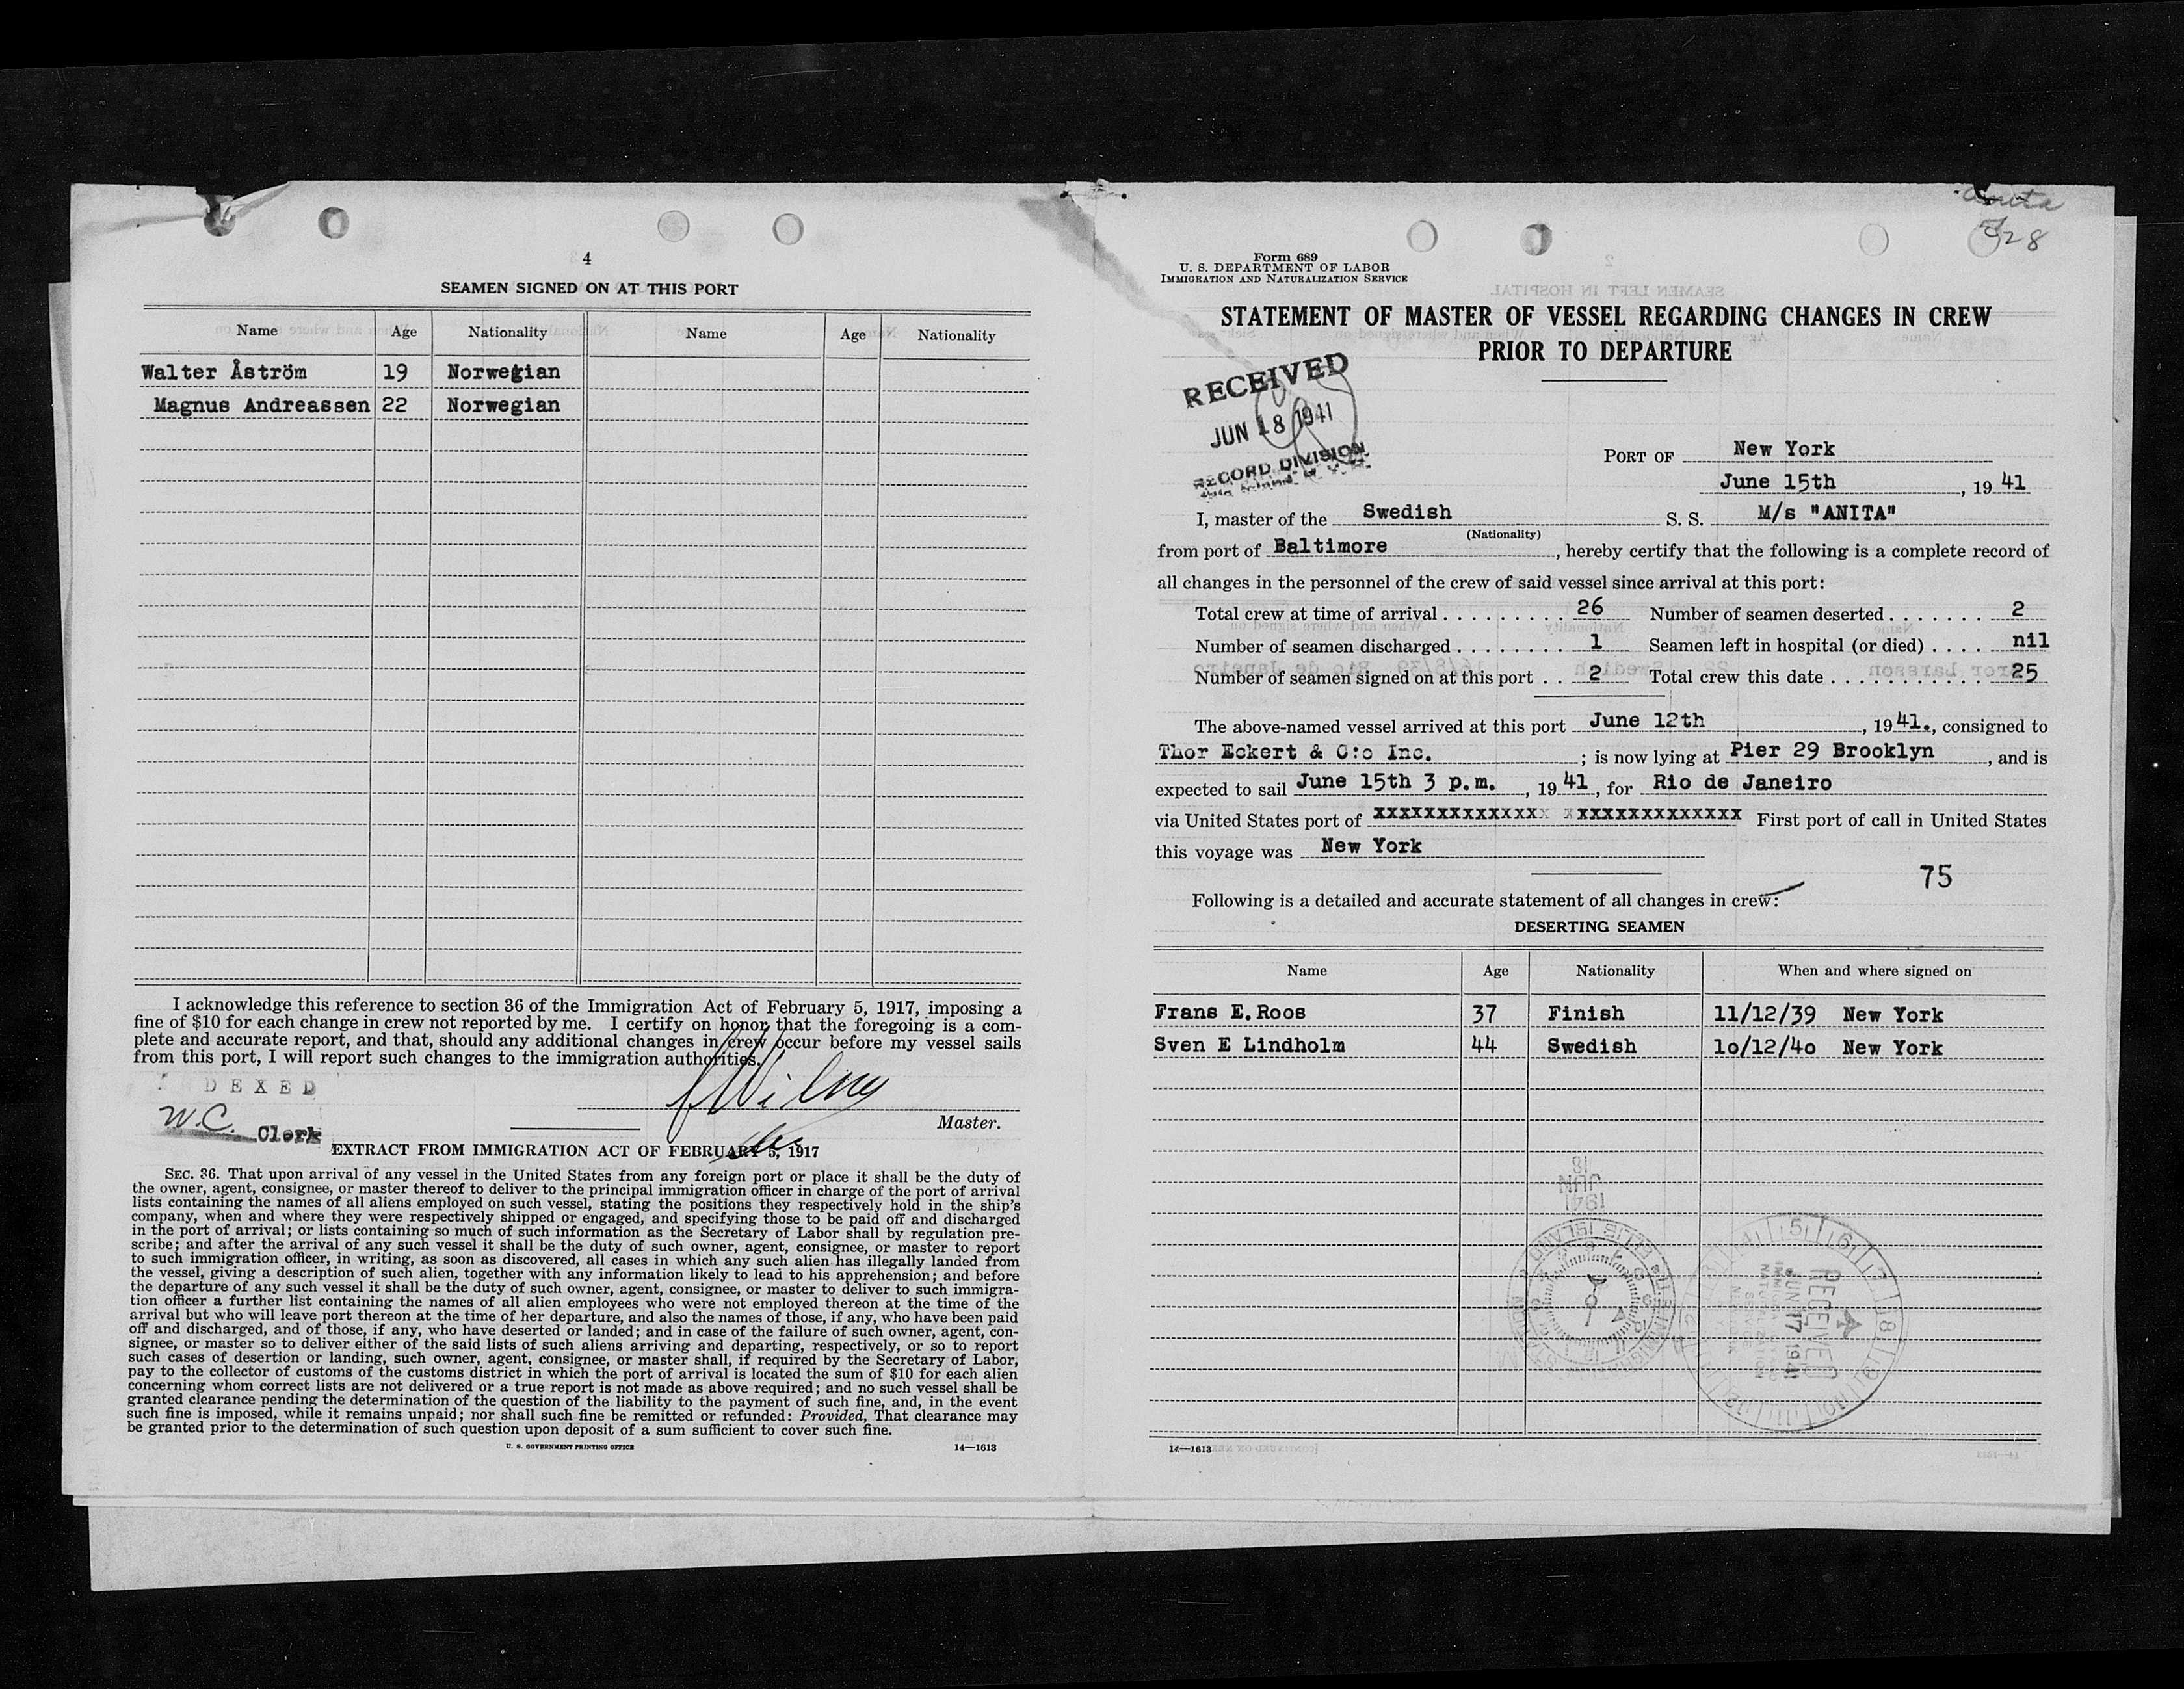 4
SEAMEN SIGNED ON AT THIS PORT
Name Age Nationality Name Age Nationality
Walter Åström 19 Norwegian
Magnus Andreassen 22 Norwegian
I acknowledge this reference to section 36 of the Immigration Act of February 5, 1917, imposing a
fine of $10 for each change in crew not reported by me. I certify on honor that the foregoing is a com-
plete and accurate report, and that, should any additional changes in crew occur before my vessel sails
from this port, I will report such changes to the immigration authorities.
DEXED
W.C. Clerk
Master.
EXTRACT FROM IMMIGRATION ACT OF FEBRUARY 5, 1917
SEC. 36. That upon arrival of any vessel in the United States from any foreign port or place it shall be the duty of
the owner, agent, consignee, or master thereof to deliver to the principal immigration officer in charge of the port of arrival
lists containing the names of all aliens employed on such vessel, stating the positions they respectively hold in the ship's
company, when and where they were respectively shipped or engaged, and specifying those to be paid off and discharged
in the port of arrival; or lists containing so much of such information as the Secretary of Labor shall by regulation pre-
scribe; and after the arrival of any such vessel it shall be the duty of such owner, agent, consignee, or master to report
to such immigration officer, in writing, as soon as discovered, all cases in which any such alien has illegally landed from
the vessel, giving a description of such alien, together with any information likely to lead to his apprehension; and before
the departure of any such vessel it shall be the duty of such owner, agent, consignee, or master to deliver to such immigra-
tion officer a further list containing the names of all alien employees who were not employed thereon at the time of the
arrival but who will leave port thereon at the time of her departure, and also the names of those, if any, who have been paid
off and discharged, and of those, if any, who have deserted or landed; and in case of the failure of such owner, agent, con-
signee, or master so to deliver either of the said lists of such aliens arriving and departing, respectively, or so to report
such cases of desertion or landing, such owner, agent, consignee, or master shall, if required by the Secretary of Labor,
pay to the collector of customs of the customs district in which the port of arrival is located the sum of $10 for each alien
concerning whom correct lists are not delivered or a true report is not made as above required; and no such vessel shall be
granted clearance pending the determination of the question of the liability to the payment of such fine, and, in the event
such fine is imposed, while it remains unpaid; nor shall such fine be remitted or refunded: Provided, That clearance may
be granted prior to the determination of such question upon deposit of a sum sufficient to cover such fine.
U. S. GOVERNMENT PRINTING OFFICE 14—1613
Anita
5/28
Form 689
U. S. DEPARTMENT OF LABOR
IMMIGRATION AND NATURALIZATION SERVICE
STATEMENT OF MASTER OF VESSEL REGARDING CHANGES IN CREW
PRIOR TO DEPARTURE
RECEIVED
JUN 18 1941
RECORD DIVISION
PORT OF New York
June 15th, 19 41
I, master of the Swedish S. S. M/s "ANITA"
(Nationality)
from port of Baltimore, hereby certify that the following is a complete record of
all changes in the personnel of the crew of said vessel since arrival at this port:
Total crew at time of arrival . . . . . . . . . 26 Number of seamen deserted . . . . . . . 2
Number of seamen discharged . . . . . . . . 1 Seamen left in hospital (or died) . . . . nil
Number of seamen signed on at this port . . 2 Total crew this date . . . . . . . . . . . 25
The above-named vessel arrived at this port June 12th, 19 41., consigned to
Thor Eckert & C:o Inc. ; is now lying at Pier 29 Brooklyn, and is
expected to sail June 15th 3 p.m., 19 41, for Rio de Janeiro
via United States port of xxxxxxxxxxxxxx xxxxxxxxxxxxxx First port of call in United States
this voyage was New York
75
Following is a detailed and accurate statement of all changes in crew:
DESERTING SEAMEN
Name Age Nationality When and where signed on
Frans E.Roos 37 Finish 11/12/39 New York
Sven E Lindholm 44 Swedish 1o/12/4o New York
RECEIVED
JUN 17 1941
14—1613